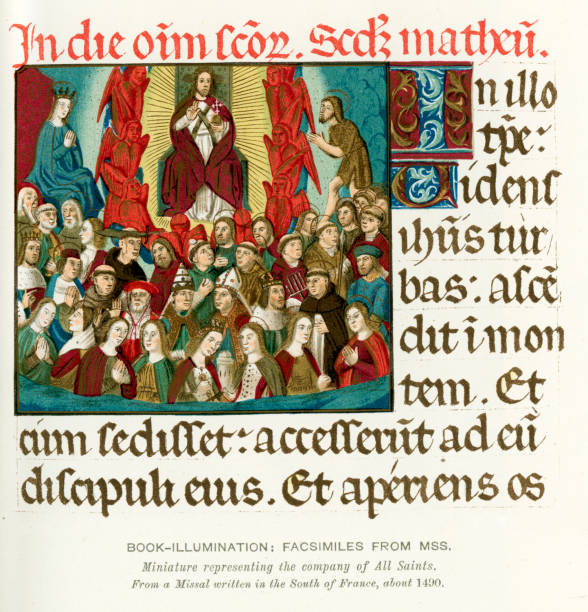 In die oı̄m scōr. Scd̄z matheū.
In illo
tp̄e:
Uidens
ihūs tur
bas: ascē
dit ī mon
tem. Et
cūm sedisset: accesserūt ad eū
discipuli eius. Et apériens os
BOOK-ILLUMINATION: FACSIMILES FROM MSS.
Miniature representing the company of All Saints.
From a Missal written in the South of France, about 1490.